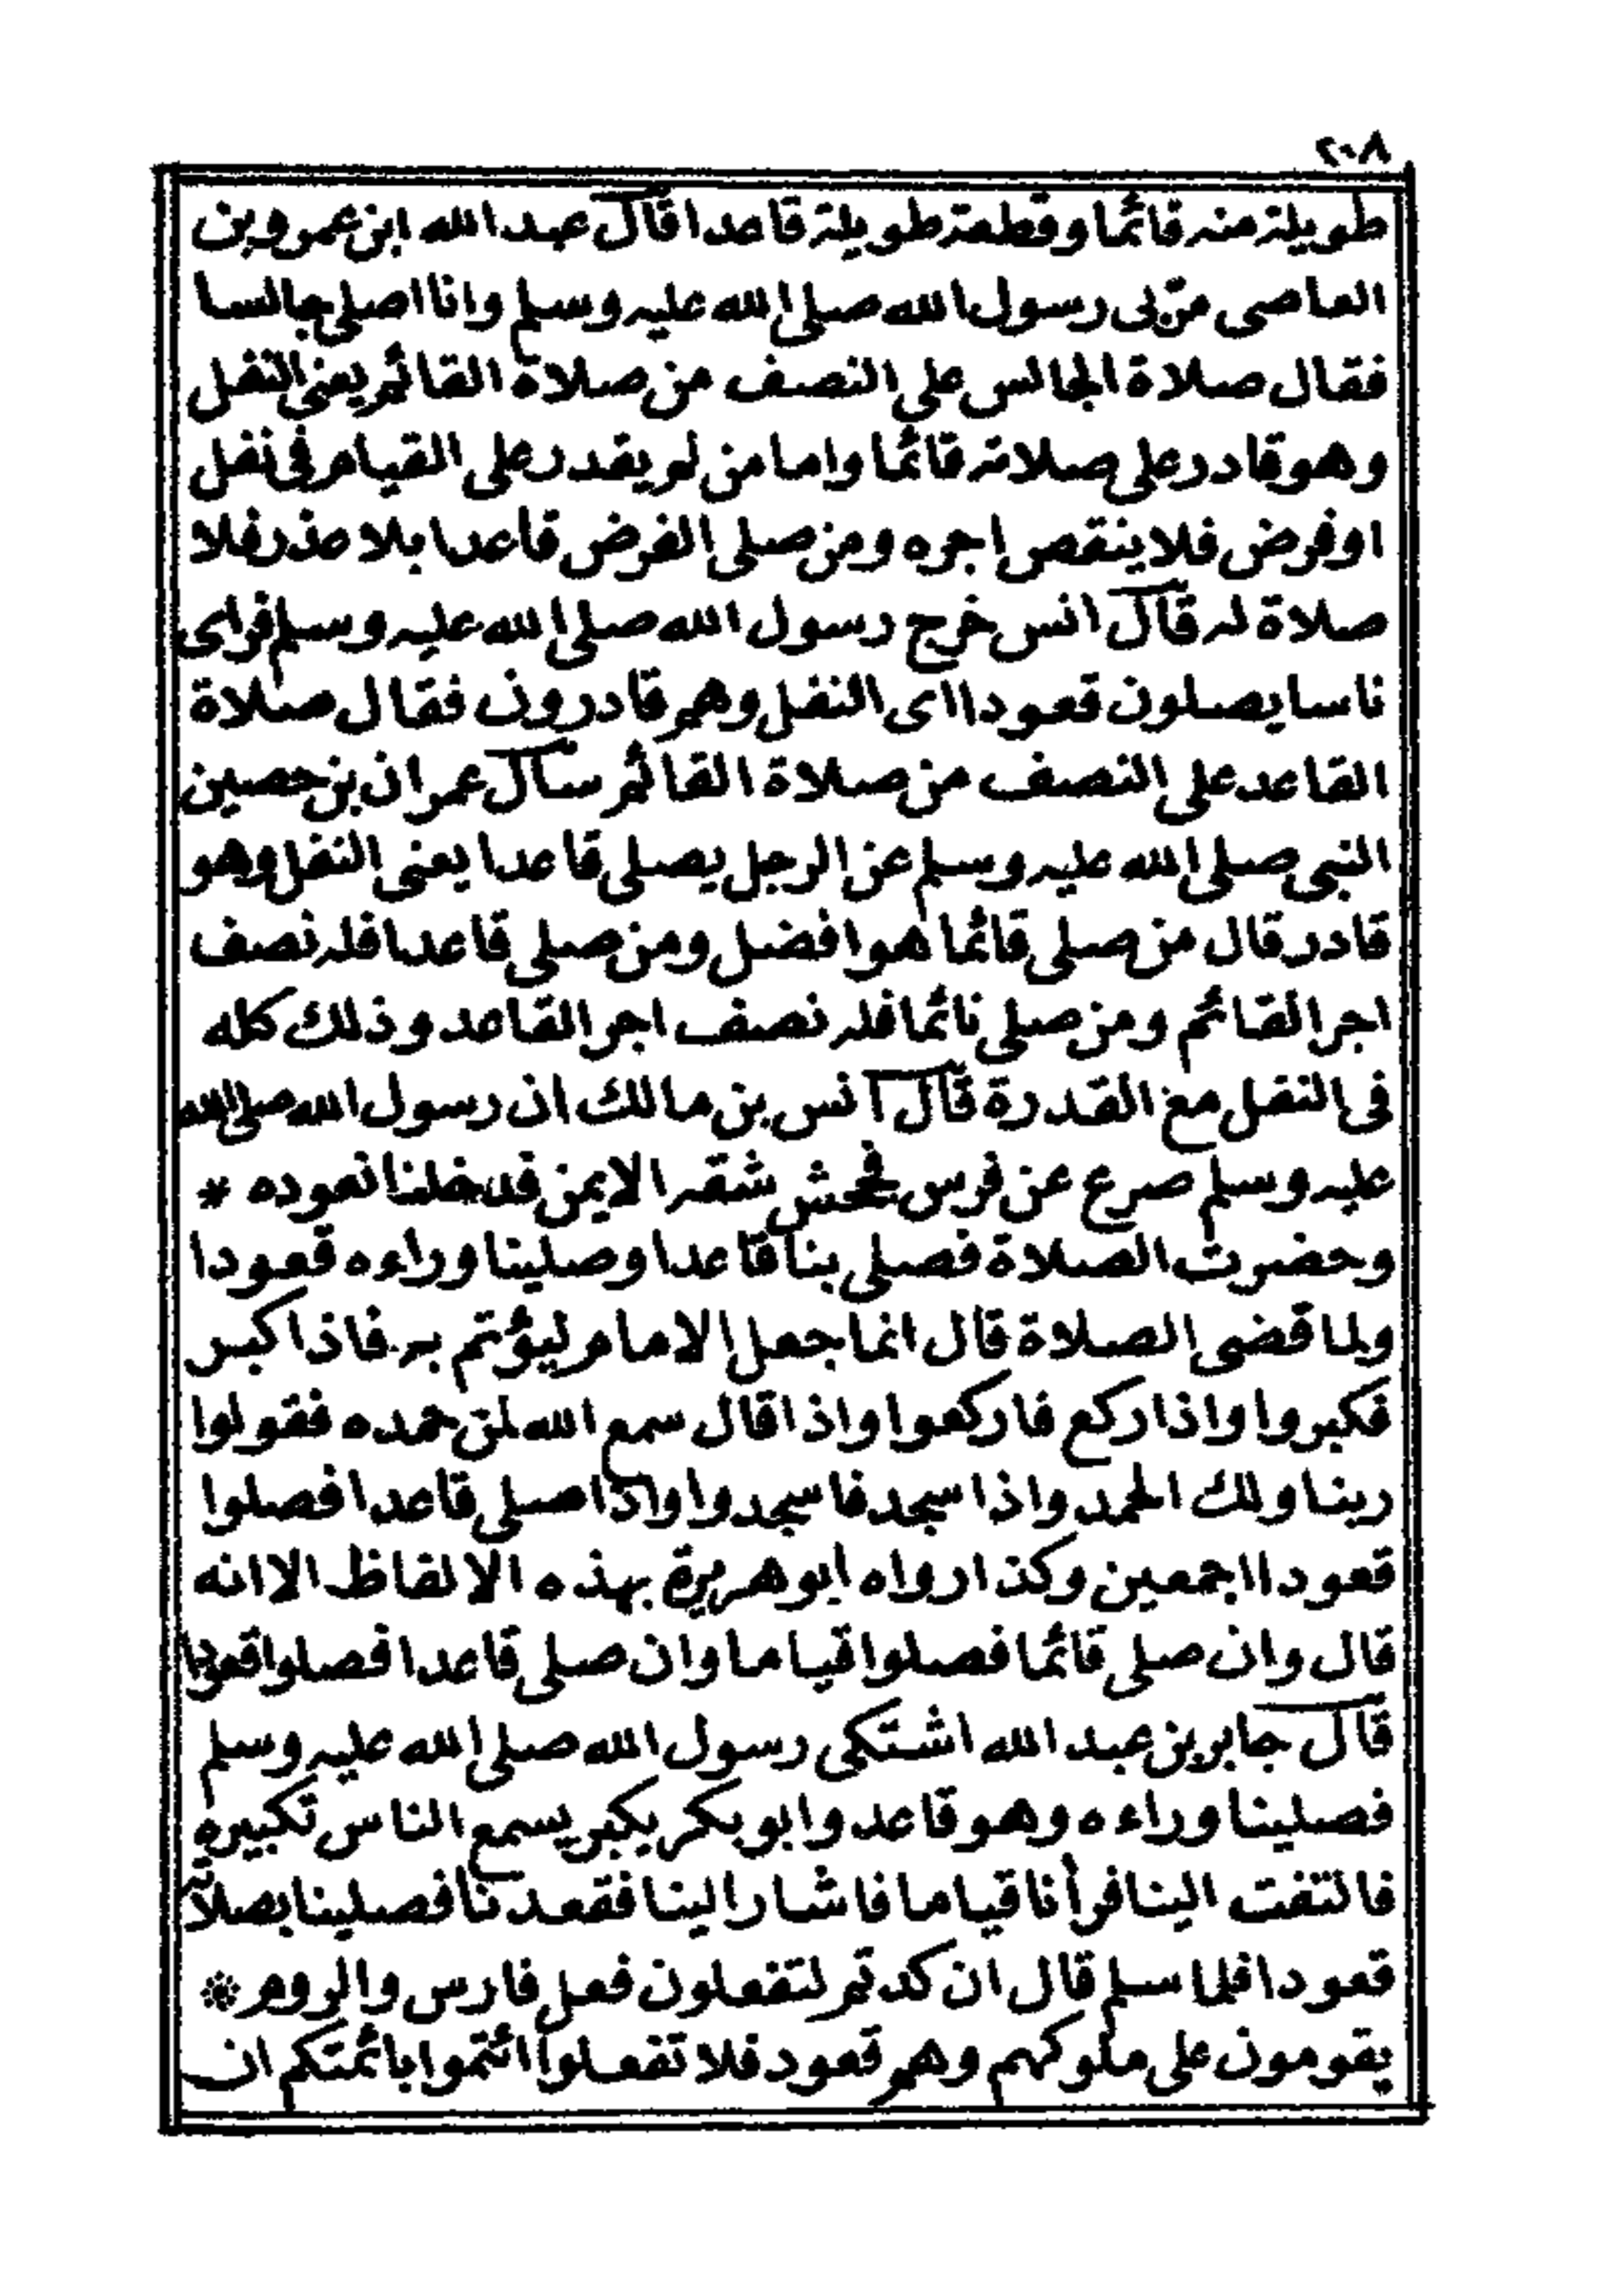 ٢٠٨
طويلة منه قائما وقطعة طويلة قاعدا قال عبد الله ابن عمرو بن
العاصى مرّ بى رسول الله صلى الله عليه وسلم وانا اصلى جالسا
فقال صلاة الجالس على النصف من صلاة القائم يعنى النفل
وهو قادر على صلاته قائما واما من لم يقدر على القيام فى نفل
او فرض فلا ينقص اجره ومن صلى الفرض قاعدا بلا عذر فلا
صلاة له قال انس خرج رسول الله صلى الله عليه وسلم فراى
ناسا يصلون قعودا اى النفل وهم قادرون فقال صلاة
القاعد على النصف من صلاة القائم سأل عمران بن حصين
النبى صلى الله عليه وسلم عن الرجل يصلى قاعدا يعنى النفل وهو
قادر قال من صلى قائما هو افضل ومن صلى قاعدا فله نصف
اجر القائم ومن صلى نائما فله نصف اجر القاعد وذلك كله
فى النفل مع القدرة قال انس بن مالك ان رسول الله صلى الله
عليه وسلم صرع عن فرس فجحش شقه الايمن فدخلنا نعوده *
وحضرت الصلاة فصلى بنا قاعدا وصلينا وراءه قعودا
ولما قضى الصلاة قال انما جعل الامام ليؤتم به فاذا كبر
فكبروا واذا ركع فاركعوا واذا قال سمع الله لمن حمده فقولوا
ربنا ولك الحمد واذا سجد فاسجدوا واذا صلى قاعدا فصلوا
قعودا اجمعين وكذا رواه ابو هريرة بهذه الالفاظ الا انه
قال وان صلى قائما فصلوا قياما وان صلى قاعدا فصلوا قعودا
قال جابر بن عبد الله اشتكى رسول الله صلى الله عليه وسلم
فصلينا وراءه وهو قاعد وابو بكر يكبر يسمع الناس تكبيره
فالتفت الينا فرأنا قياما فاشار الينا فقعدنا فصلينا بصلاته
قعودا فلما سلم قال ان كدتم لتفعلون فعل فارس والروم *
يقومون على ملوكهم وهم قعود فلا تفعلوا ائتموا بائمتكم ان